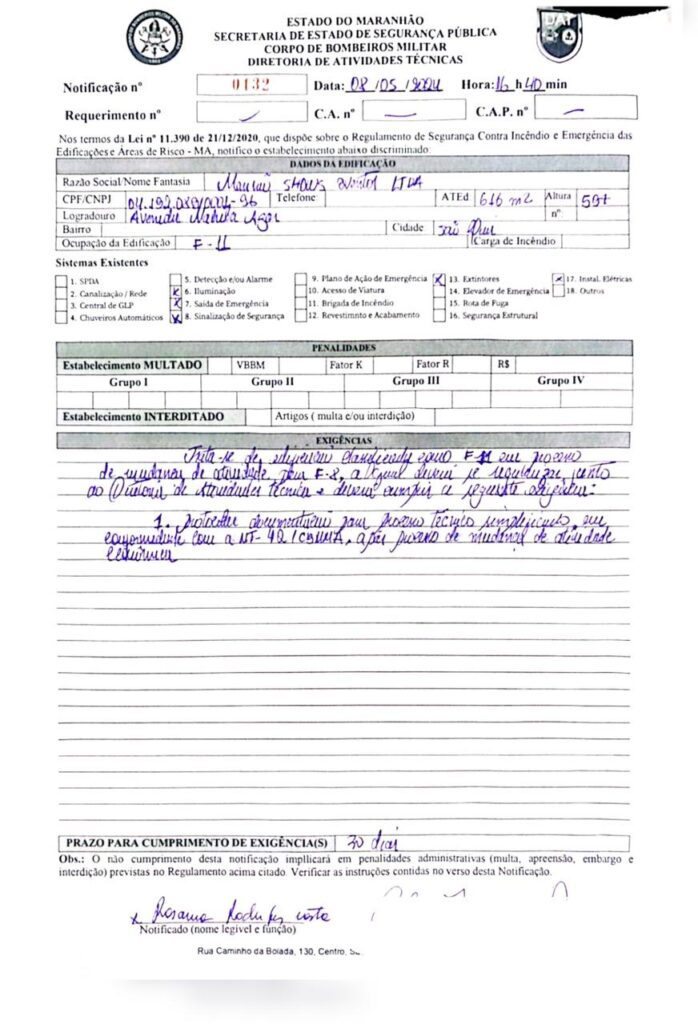 ESTADO DO MARANHÃO
SECRETARIA DE ESTADO DE SEGURANÇA PÚBLICA
CORPO DE BOMBEIROS MILITAR
DIRETORIA DE ATIVIDADES TÉCNICAS
Notificação nº 0132 Data: 08/05/2024 Hora: 16 h 40 min
Requerimento nº C.A. nº C.A.P. nº
Nos termos da Lei nº 11.390 de 21/12/2020, que dispõe sobre o Regulamento de Segurança Contra Incêndio e Emergência das
Edificações e Áreas de Risco - MA, notifico o estabelecimento abaixo discriminado:
DADOS DA EDIFICAÇÃO
Razão Social/Nome Fantasia LTDA
CPF/CNPJ Telefone ATEd 616 m2 Altura
Logradouro Avenida nº
Bairro Cidade São
Ocupação da Edificação F-11 Carga de Incêndio
Sistemas Existentes
1. SPDA 5. Detecção e/ou Alarme 9. Plano de Ação de Emergência 13. Extintores 17. Instal. Elétricas
2. Canalização / Rede 6. Iluminação 10. Acesso de Viatura 14. Elevador de Emergência 18. Outros
3. Central de GLP 7. Saída de Emergência 11. Brigada de Incêndio 15. Rota de Fuga
4. Chuveiros Automáticos 8. Sinalização de Segurança 12. Revestimnto e Acabamento 16. Segurança Estrutural
PENALIDADES
Estabelecimento MULTADO VBBM Fator K Fator R R$
Grupo I Grupo II Grupo III Grupo IV
Estabelecimento INTERDITADO Artigos ( multa e/ou interdição)
EXIGÊNCIAS
Trata-se de edificação classificada como F-11 em processo
de mudança de atividade para F-8, a qual deverá se regularizar junto
a Diretoria de Atividades Técnica e deverá cumprir a seguinte exigência:
1. protocolar documentação para processo técnico simplificado, em
conformidade com a NT-42/CBMMA, após processo de mudança de atividade
econômica
PRAZO PARA CUMPRIMENTO DE EXIGÊNCIA(S) 30 dias
Obs.: O não cumprimento desta notificação impllicará em penalidades administrativas (multa, apreensão, embargo e
interdição) previstas no Regulamento acima citado. Verificar as instruções contidas no verso desta Notificação.
x Rosama Rodrigues Costa
Notificado (nome legível e função)
Rua Caminho da Boiada, 130, Centro,